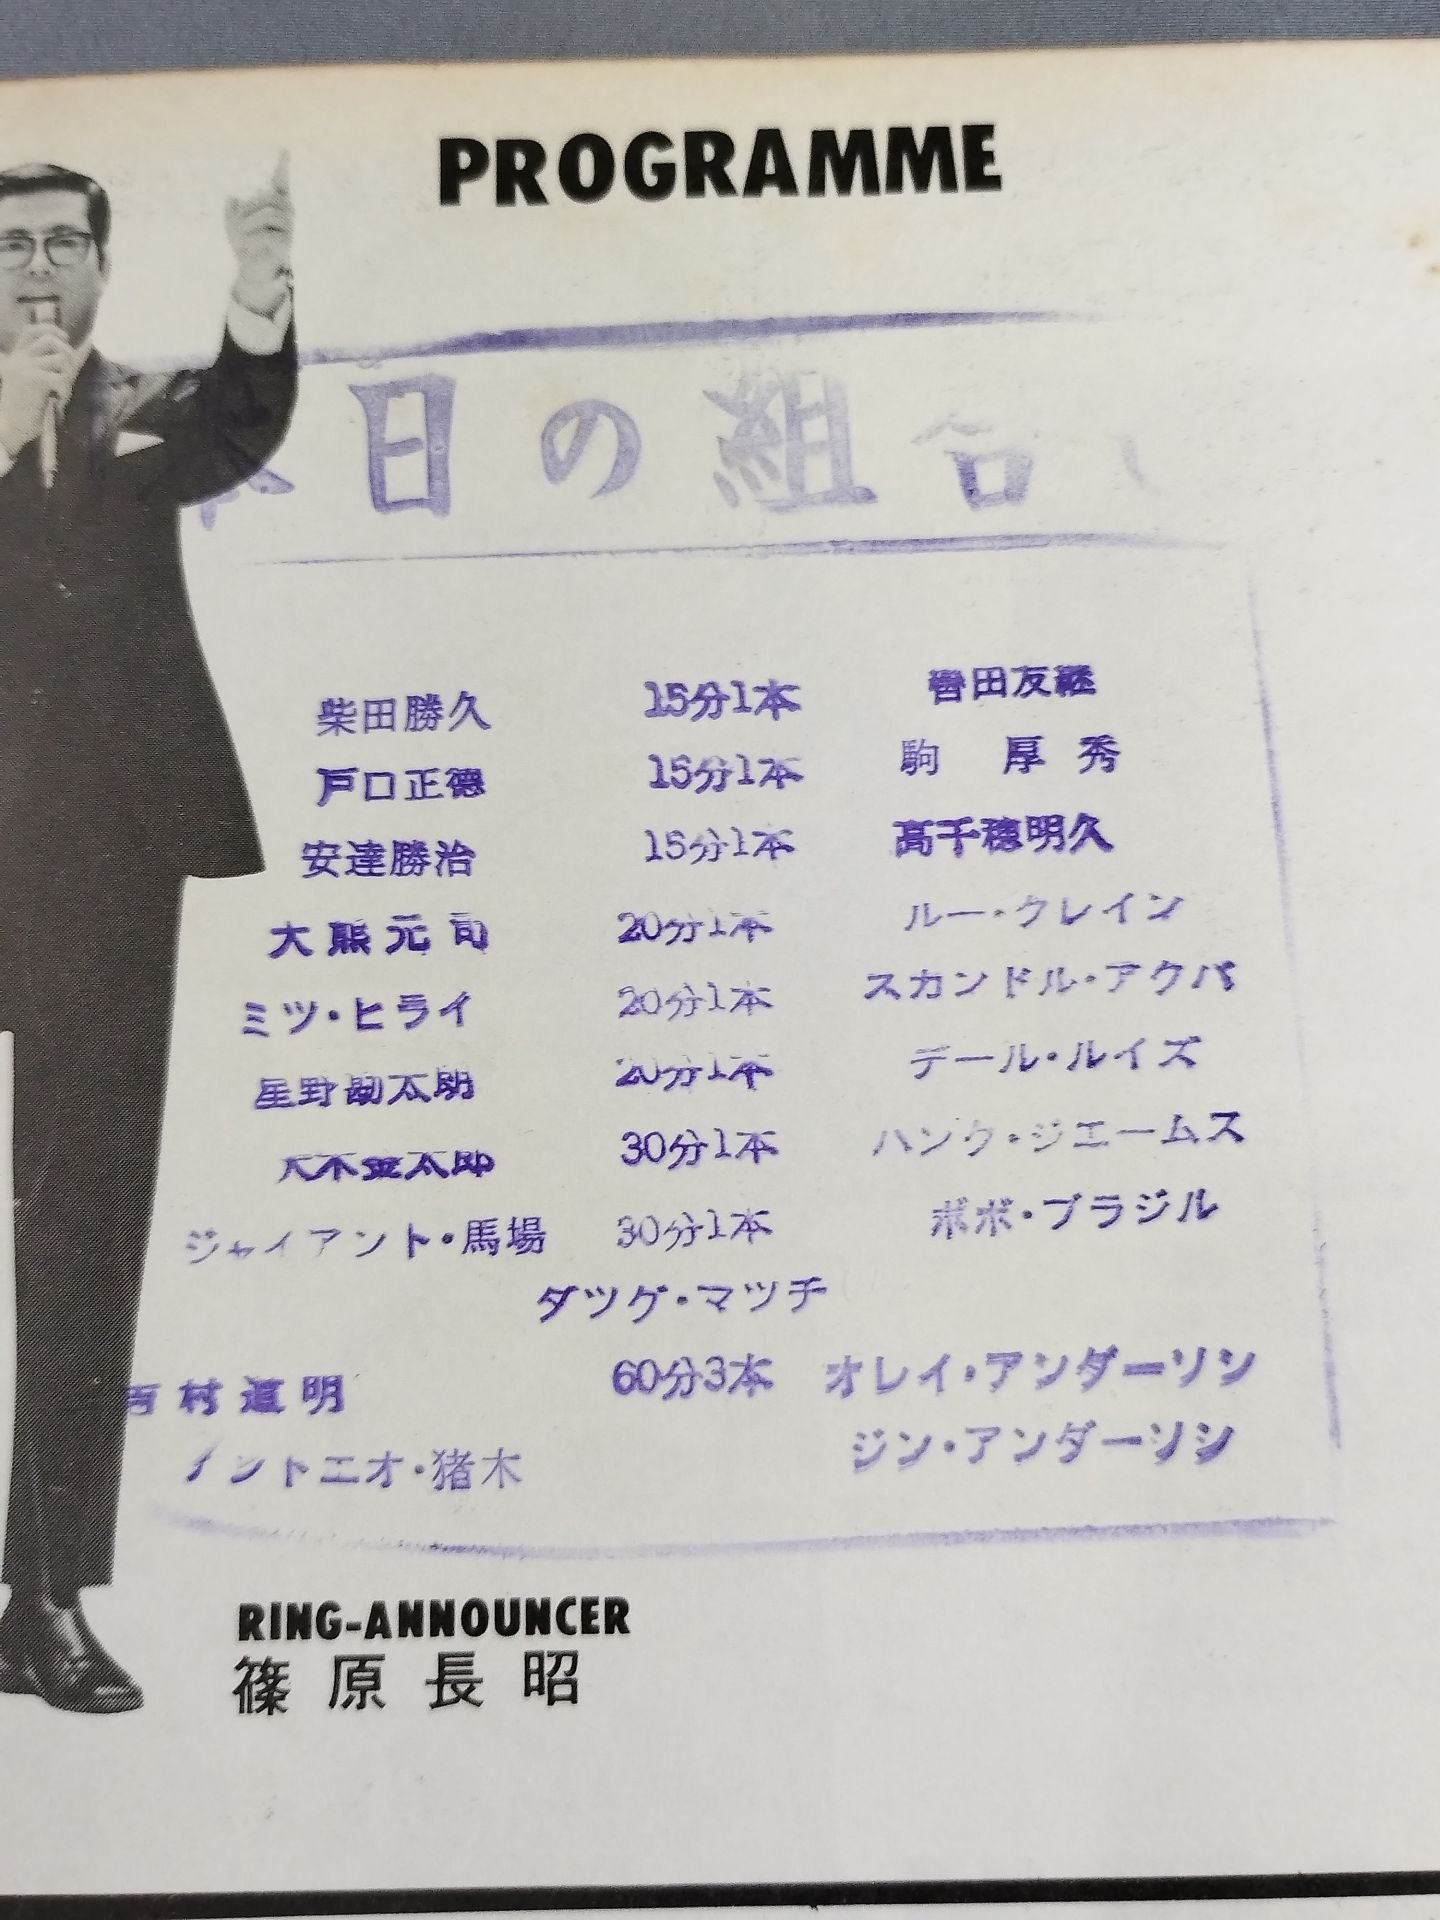 PROGRAMME
本日の組合
柴田勝久 15分1本 轡田友継
戸口正徳 15分1本 駒 厚秀
安達勝治 15分1本 高千穂明久
大熊元司 20分1本 ルー・クレイン
ミツ・ヒライ 20分1本 スカンドル・アクバ
星野勘太郎 20分1本 デール・ルイズ
大木金太郎 30分1本 ハンク・ジエームス
ジャイアント・馬場 30分1本 ボボ・ブラジル
タツグ・マツチ
吉村道明 60分3本 オレイ・アンダーソン
アントニオ・猪木 ジン・アンダーソン
RING-ANNOUNCER
篠原長昭